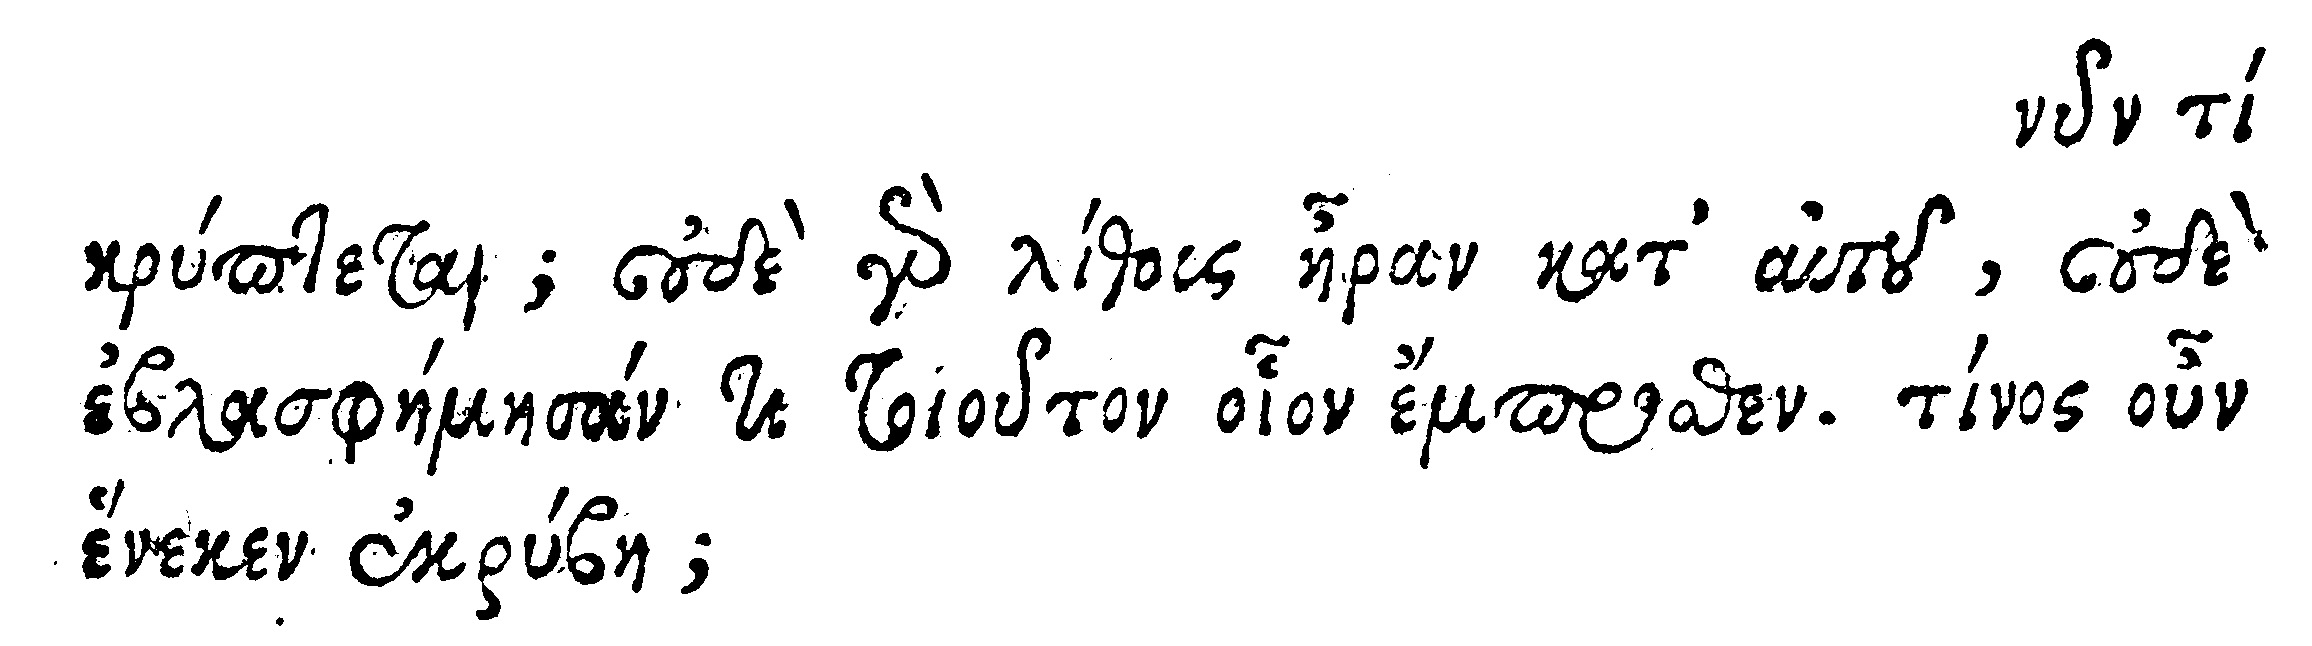 νῦν τί
κρύπτεται; οὐδὲ γὰρ λίθους ἦραν κατ' αὐτοῦ, οὐδὲ
ἐβλασφήμησάν τι τοιοῦτον οἷον ἔμπροσθεν. τίνος οὖν
ἕνεκεν ἐκρύβη;